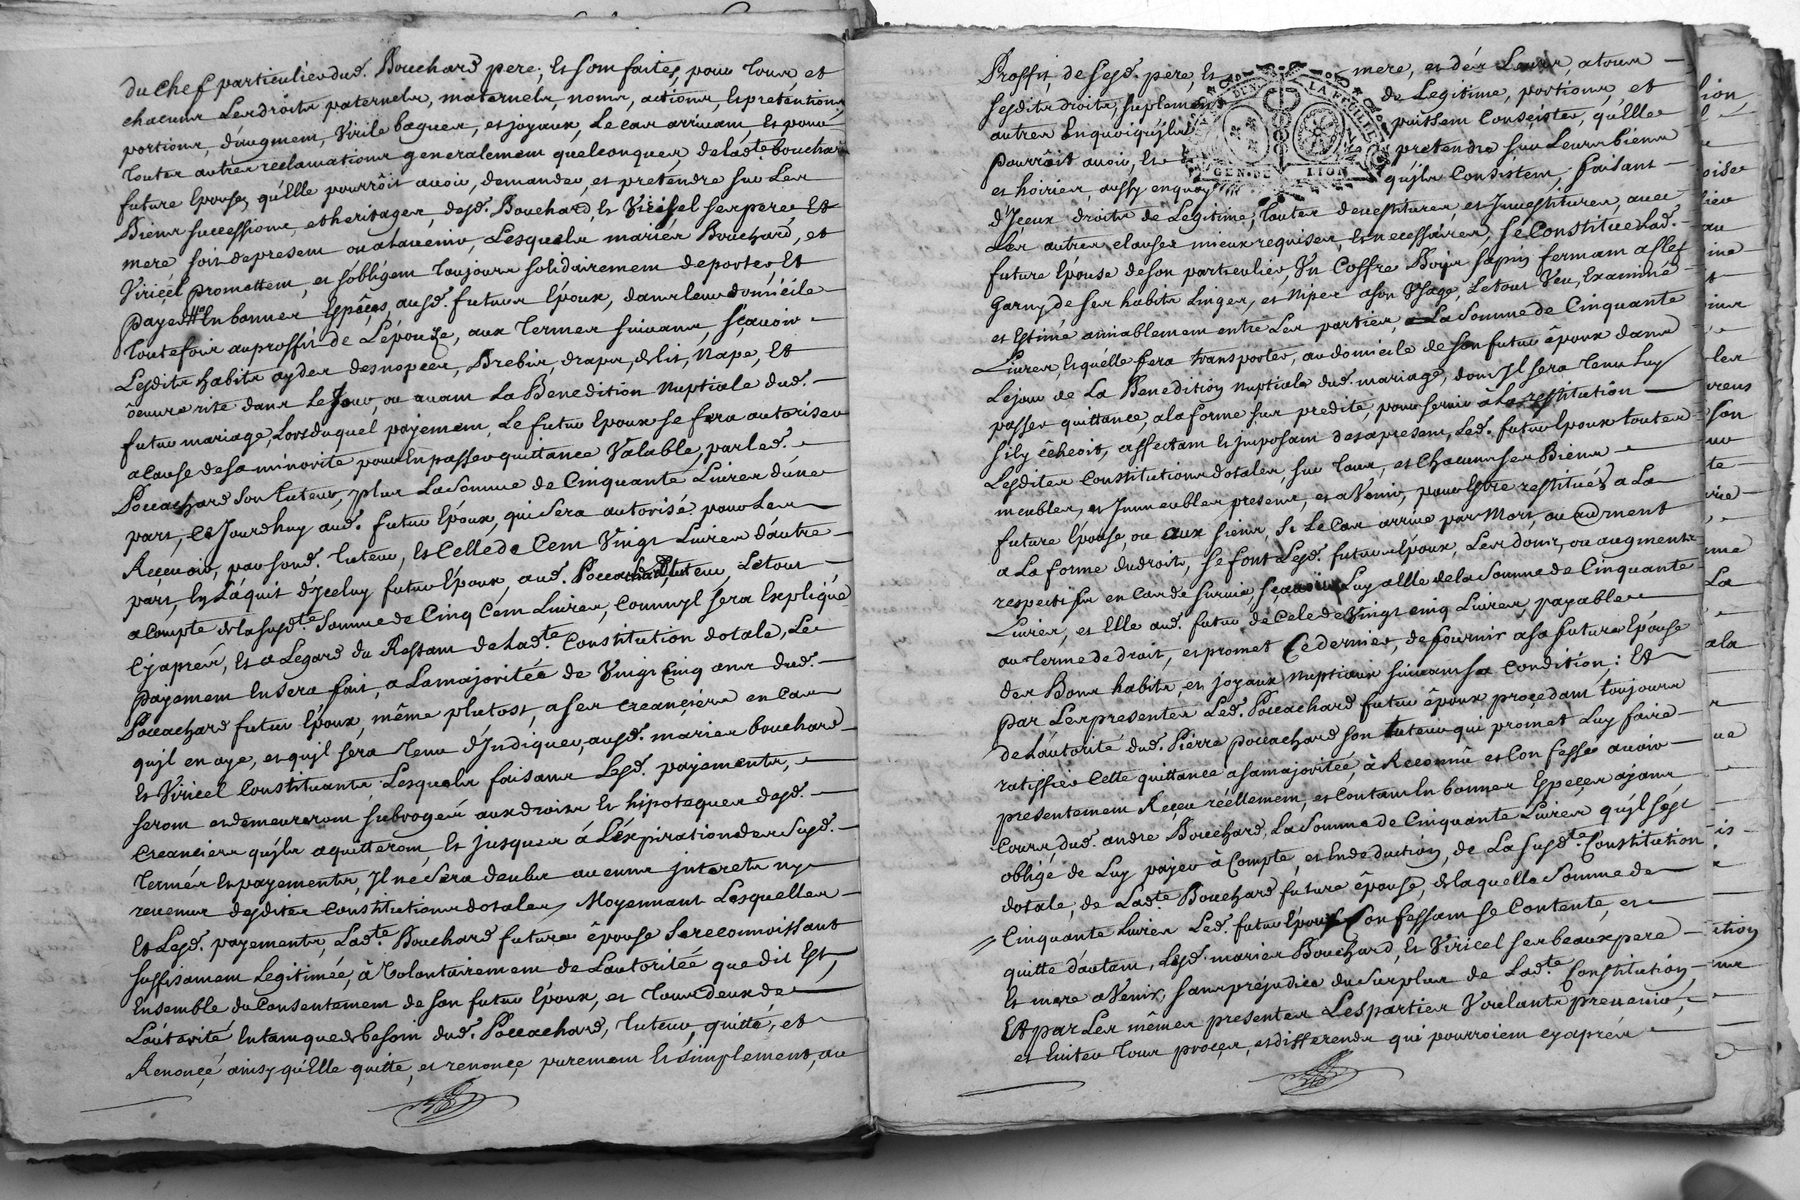 du chef particulier dud. Bouchard pere; Et sont faites, pour tous et
chacuns Les droits paternels, maternels, noms, actions, Et prétentions
portions, d'augment, Virile bagues, et joyaux, Le cas arrivant, Et pour
toutes autres réclamations generalement quelconques, de lad.te bouchard
future Epouse, qu'Elle pourroit avoir, demander, et pretendre sur Les
Biens successions, et heritages, desd. Bouchard, Et Viricel ses pere Et
mere soit de present ou a lavenir, Lesquels mariés Bouchard, et
Viricel promettent, et s'obligent toujours solidairement de porter, Et
payer En bonnes Espéces, ausd. futurs Epoux, dans leur domicile
toutefois au proffit de L'épouse, aux termes suivants, sçavoir
Lesdits habits ayder des nopces, Brebis, draps, de lit, Nape, Et
oeuvre rite dans Le Jour, ou avant La Benediction Nuptiale dud.
futur mariage, Lors duquel payement, Le futur Epoux se fera autoriser
a cause de sa minorité pour En passer quittance Valable, par led.
Poccachard son tuteur, plus La Somme de Cinquante Livres d'une
part, Ce Jourdhuy aud. futur Epoux, qui sera autorisé pour Les
Reçevoir, par sond. tuteur, Et Celle de Cent Vingt Livres d'autre
part, En L'aquit d'Yceluy futur Epoux, aud. Poccachard tuteur, Le tout
a Compte de la susd.te Somme de Cinq Cent Livres, Comm'yl sera Expliqué
Cyaprés, Et a Legard du Restant de Lad.te Constitution dotale, Le
payement En sera fait, a La majoritée de Vingt Cinq ans dud.
Poccachard futur Epoux, même plutost, a ses creanciers en Cas
qu'yl en aye, et qu'yl sera tenu d'Indiquer, ausd. mariés bouchard
Et Viricel Constituants Lesquels faisants Lesd. payements,
seront et demeureront subrogés aux droits Et hipoteques desd.
Creanciers qu'yls aquitteront, Et jusques á L'expiration des Susd.
termes Et payements, Jl ne Sera deubs aucuns Interets ny
revenus desdites Constitutions dotales, Moyennant Lesquelles
Et Lesd. payements, Lad.te Bouchard future épouse Se reconnoissant
suffisament Legitimée, à Volontairement de L'autoritée que dit Est,
Ensemble du Consentement de son futur Epoux, et tous deux de
L'autorité En tant que de besoin dud. Poccachard, tuteur, quitté, et
Renonçé ainsy qu'Elle quitte, et renonçe purement Et simplement, au
Proffit, de sesd. pere, Et mere, et dés Leurs, a tous
sesdits droits, suplement de Legitime, portions, et
autres En quoi qu'yls puissent Consister, qu'Elle
pourroit avoir, Et pretendre sur Leurs biens
et hoiries, aussy en quoy qu'yls Consistent, faisant
GEN. DE LION
d'Yceux droits de Legitime, toutes devestitures, et Investitures, avec
Les autres clauses mieux requises, Et necessaires, se Constitue Lad.
future Epouse de son particulier, Vn Coffre Bois sapin fermant a clef
Garny de ses habits Linges, et Nipes a son Vsage, Le tout Veu, Examiné
et Estimé amiablement entre Les parties, a La Somme de Cinquante
Livres, Et qu'elle fera transporter, au domicile de son futur époux dans
Le jour de La Benediction Nuptiale dud. mariage, dont Jl sera tenu Luy
passer quittance, a la forme sus predite, pour servir à La restitution
s'ily êcheoit, affectant Et Imposant des apresent, Led. futur Epoux toutes
Lesdites Constitutions dotales, sur tous, et Chacuns ses Biens
meubles, et Immeubles presents, et a Venir, pour Estre restitués a La
future Epouse, ou aux siens, Si Le Cas arrive par Mort, ou autrement
a La forme du droit, se font Lesd. futurs Epoux, Les dons, ou augments
respectifs en Cas de survie, sçavoir Luy a Elle de la Somme de Cinquante
Livres, et Elle aud. futur de Cele de Vingt cinq Livres, payables
au terme de droit, et promet Ce dernier, de fournir a sa future Epouse
des Bons habits, et joyaux Nuptiaux suivant sa Condition: Et
par Les presentes Led. Poccachard futur époux procedant toujours
de L'autorité dud. Pierre poccachard son tuteur qui promet Luy faire
ratiffier Cette quittance a sa majoritée, à Reconnû et Confessé avoir
presentement Reçeu réellement, et Contant En bonnes Espeçes ayant
Cours, dud. andre Bouchard, La Somme de Cinquante Livres qu'yl sest
obligé de Luy payer à Compte, et En deduction, de La susd.te Constitution
dotale, de Lad.te Bouchard future épouse, de laquelle Somme de
Cinquante Livres Led. futur Epoux Confessant se Contente, et
quitte d'autant, Lesd. mariés Bouchard, Et Viricel ses beaux pere
Et mere a Venir, sans préjudice du Surplus de Lad.te Constitution,
Et par Les mêmes presentes Les parties Voulants prevenir,
et Eviter tous proçes, et differends qui pourroient cyaprés